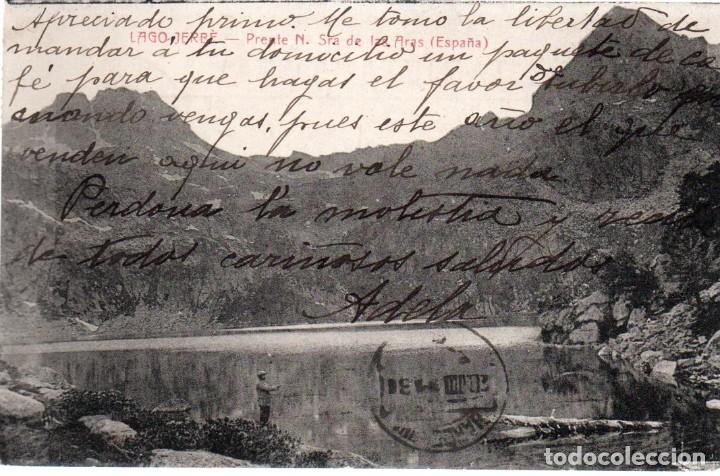 Apreciado primo. Me tomo la libertad de
LAGO JERBÉ — Prente N. Sra de las Aras (España)
mandar á tu domicilio un paquete de ca
fé para que hagas el favor de subirlo
cuando vengas, pues este año el que
venden aqui no vale nada
Perdona la molestia y recibe
de todos cariñosos saludos
Adela
todocoleccion.net